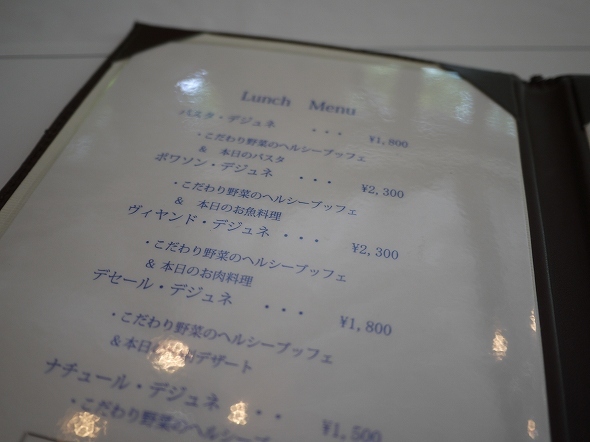 Lunch Menu
パスタ・デジュネ ・・・ ¥1,800
・こだわり野菜のヘルシーブッフェ
& 本日のパスタ
ポワソン・デジュネ ・・・ ¥2,300
・こだわり野菜のヘルシーブッフェ
& 本日のお魚料理
ヴィヤンド・デジュネ ・・・ ¥2,300
・こだわり野菜のヘルシーブッフェ
& 本日のお肉料理
デセール・デジュネ ・・・ ¥1,800
・こだわり野菜のヘルシーブッフェ
&本日 デザート
ナチュール・デジュネ ・・・ ¥1,500
・こだわり野菜のヘルシーブッフェ